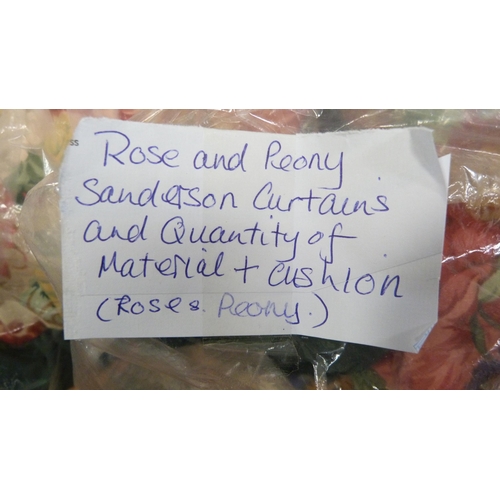 ss
Rose and Peony
Sanderson Curtains
and Quantity of
Material + Cushion
(Rose & Peony.)